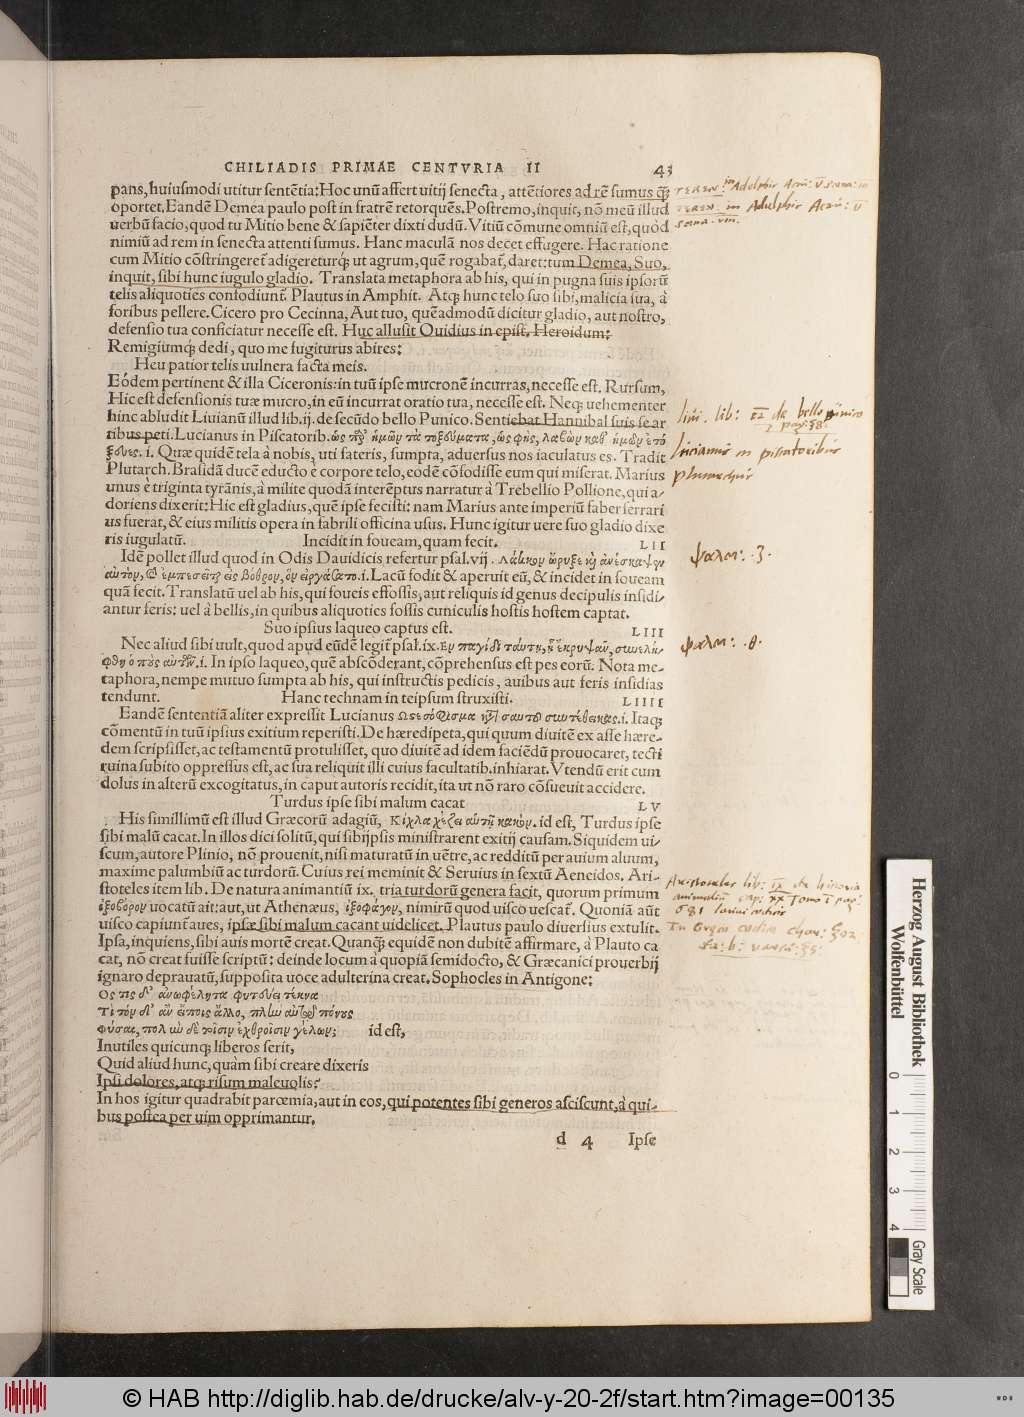 CHILIADIS PRIMAE CENTVRIA II 43
pans, huiusmodi utitur sentētia: Hoc unū affert uitij senecta, attētiores ad rē sumus qꝫ
oportet. Eandē Demea paulo post in fratrē retorquēs. Postremo, inquit, nō meū illud
uerbū facio, quod tu Mitio bene & sapiēter dixti dudū. Vitiū cōmune omniū est, quod
nimiū ad rem in senecta attenti sumus. Hanc maculā nos decet effugere. Hac ratione
cum Mitio cōstringeret̄ adigereturqꝫ ut agrum, quē rogabat̄, daret: tum Demea, Suo,
inquit, sibi hunc iugulo gladio. Translata metaphora ab his, qui in pugna suis ipsorū
telis aliquoties confodiunt̄. Plautus in Amphit. Atqꝫ hunc telo suo sibi, malicia sua, à
foribus pellere. Cicero pro Cecinna, Aut tuo, quēadmodū dicitur gladio, aut nostro,
defensio tua conficiatur necesse est. Huc allusit Ouidius in epist. Heroidum:
Remigiumqꝫ dedi, quo me fugiturus abires:
Heu patior telis uulnera facta meis.
Eódem pertinent & illa Ciceronis: in tuū ipse mucronē incurras, necesse est. Rursum,
Hic est defensionis tuæ mucro, in eū incurrat oratio tua, necesse est. Neqꝫ uehementer
hinc abludit Liuianū illud lib. ij. de secūdo bello Punico. Sentiebat Hannibal suis se ar
tibus peti. Lucianus in Piscatorib. ὡς παρ' ἡμῶν τὰ τοξεύματα, ὡς φῂς, λαβὼν καθ' ἡμῶν ἐτό
ξευες. i. Quæ quidē tela à nobis, uti fateris, sumpta, aduersus nos iaculatus es. Tradit
Plutarch. Brasidā ducē educto è corpore telo, eodē cōfodisse eum qui miserat. Marius
unus è triginta tyrānis, à milite quodā interēptus narratur à Trebellio Pollione, qui a-
doriens dixerit: Hic est gladius, quē ipse fecisti: nam Marius ante imperiū faber ferrari
us fuerat, & eius militis opera in fabrili officina usus. Hunc igitur uere suo gladio dixe
ris iugulatū. Incidit in foueam, quam fecit. LII
Idē pollet illud quod in Odis Dauidicis refertur psal. vij. Λάκκον ὤρυξε καὶ ἀνέσκαψεν
αὐτὸν, καὶ ἐμπεσεῖται εἰς βόθρον, ὃν εἰργάσατο. i. Lacū fodit & aperuit eū, & incidet in foueam
quā fecit. Translatū uel ab his, qui foueis effossis, aut reliquis id genus decipulis insidi-
antur feris: uel à bellis, in quibus aliquoties fossis cuniculis hostis hostem captat.
Suo ipsius laqueo captus est. LIII
Nec aliud sibi uult, quod apud eūdē legit̄ psal. ix. Ἐν παγίδι ταύτῃ, ᾗ ἔκρυψαν, συνελή-
φθη ὁ ποὺς αὐτῶν. i. In ipso laqueo, quē abscōderant, cōprehensus est pes eorū. Nota me-
taphora, nempe mutuo sumpta ab his, qui instructis pedicis, auibus aut feris insidias
tendunt. Hanc technam in teipsum struxisti. LIIII
Eandē sententiā aliter expressit Lucianus Ὡς σόφισμα κατὰ σαυτοῦ συντέθεικας. i. Itaqꝫ
cōmentū in tuū ipsius exitium reperisti. De hæredipeta, qui quum diuitē ex asse hære-
dem scripsisset, ac testamentū protulisset, quo diuitē ad idem faciēdū prouocaret, tecti
ruina subito oppressus est, ac sua reliquit illi cuius facultatib. inhiarat. Vtendū erit cum
dolus in alterū excogitatus, in caput autoris recidit, ita ut nō raro cōsueuit accidere.
Turdus ipse sibi malum cacat LV
His simillimū est illud Græcorū adagiū, Κίχλα χέζει αὑτῇ κακόν. id est, Turdus ipse
sibi malū cacat. In illos dici solitū, qui sibijpsis ministrarent exitij causam. Siquidem ui-
scum, autore Plinio, nō prouenit, nisi maturatū in uētre, ac redditū per auium aluum,
maxime palumbiū ac turdorū. Cuius rei meminit & Seruius in sextū Aeneidos. Ari-
stoteles item lib. De natura animantiū ix. tria turdorū genera facit, quorum primum
ἰξοβόρον uocatū ait: aut, ut Athenæus, ἰξοφάγον, nimirū quod uisco uescat̄. Quoniā aūt
uisco capiunt̄ aues, ipsæ sibi malum cacant uidelicet. Plautus paulo diuersius extulit.
Ipsa, inquiens, sibi auis mortē creat. Quanqꝫ equidē non dubitē affirmare, à Plauto ca
cat, nō creat fuisse scriptū: deinde locum à quopiā semidocto, & Græcanici prouerbij
ignaro deprauatū, supposita uoce adulterina creat. Sophocles in Antigone:
Ὅς τις δ' ἀνωφέλητα φυτεύει τέκνα
Τί τόνδ' ἂν εἴποις ἄλλο, πλὴν αὑτῷ πόνους
Φύσας, πολὺν δὲ τοῖσιν ἐχθροῖσιν γέλων; id est,
Inutiles quicunqꝫ liberos serit,
Quid aliud hunc, quàm sibi creare dixeris
Ipsi dolores, atqꝫ risum maleuolis?
In hos igitur quadrabit parœmia, aut in eos, qui potentes sibi generos asciscunt, à qui-
bus postea per uim opprimantur.
d 4 Ipse
in Adelphis
in Adelphis
scena. viii.
liui. lib: de bello
lucianus in piscatoribus
plutarchus
ψαλμ: .ζ.
ψαλμ: .θ.
Aristoteles lib: ix de historia
animaliū
Herzog August Bibliothek
Wolfenbüttel
0 1 2 3 4
Gray Scale
© HAB http://diglib.hab.de/drucke/alv-y-20-2f/start.htm?image=00135